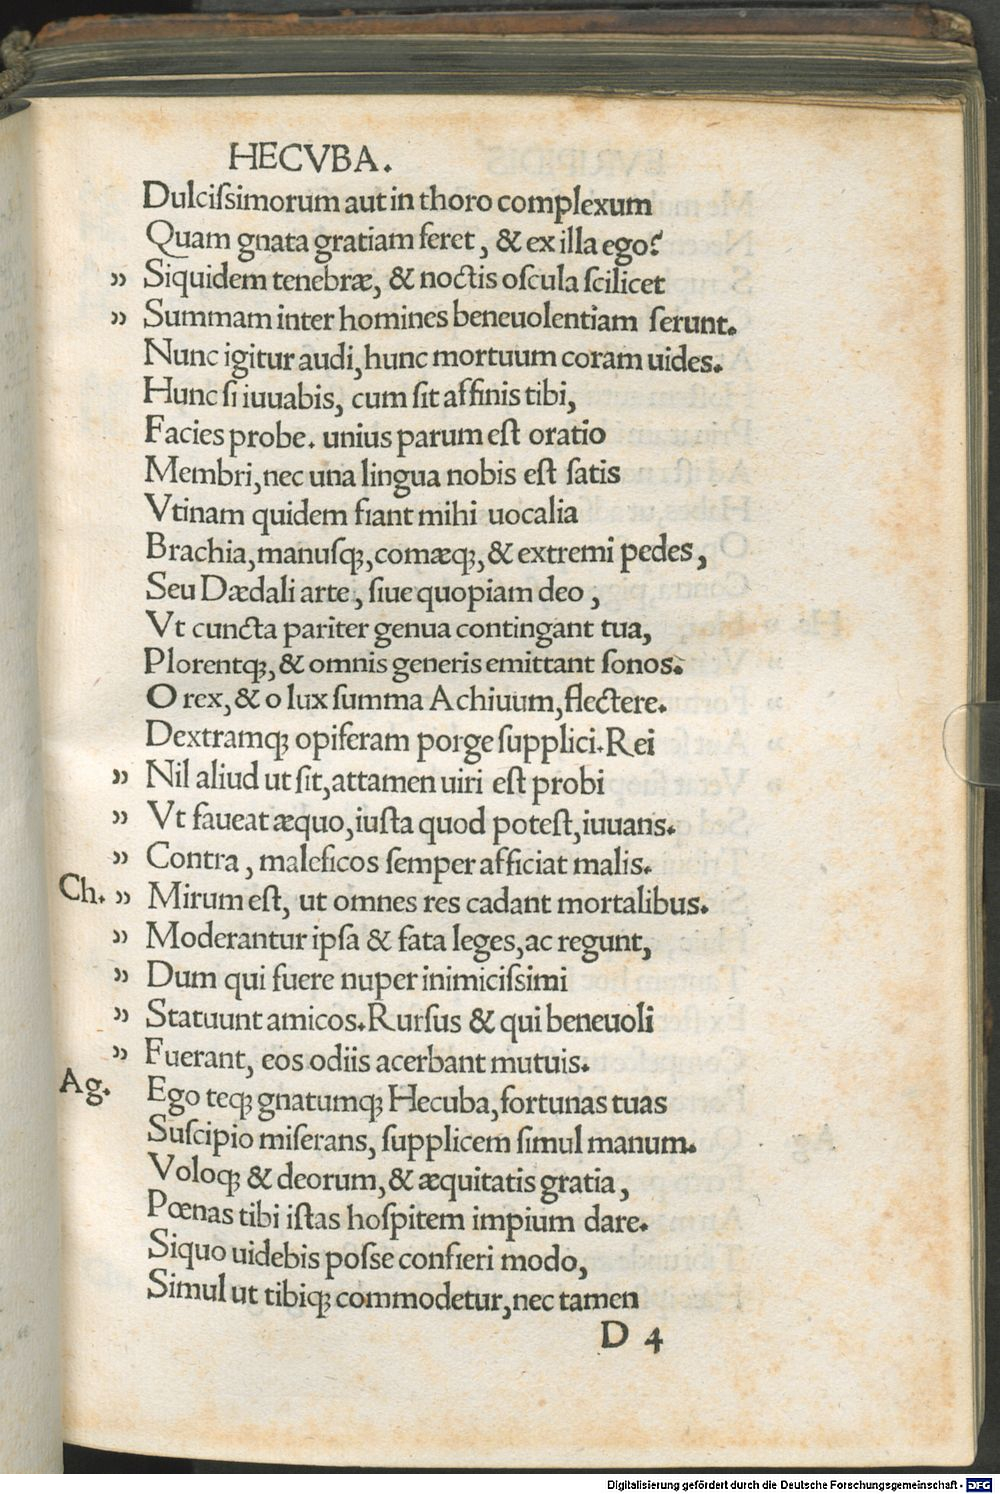 HECVBA.
Dulciſsimorum aut in thoro complexum
Quam gnata gratiam feret, & ex illa ego?
„ Siquidem tenebræ, & noctis oſcula ſcilicet
„ Summam inter homines beneuolentiam ſerunt.
Nunc igitur audi, hunc mortuum coram uides.
Hunc ſi iuuabis, cum ſit affinis tibi,
Facies probe. unius parum eſt oratio
Membri, nec una lingua nobis eſt ſatis
Vtinam quidem fiant mihi uocalia
Brachia, manuſq;, comæq;, & extremi pedes,
Seu Dædali arte, ſiue quopiam deo,
Vt cuncta pariter genua contingant tua,
Plorentq;, & omnis generis emittant ſonos.
O rex, & o lux ſumma Achiuum, flectere.
Dextramq; opiferam porge ſupplici. Rei
„ Nil aliud ut ſit, attamen uiri eſt probi
„ Vt faueat æquo, iuſta quod poteſt, iuuans.
„ Contra, maleficos ſemper afficiat malis.
Ch. „ Mirum eſt, ut omnes res cadant mortalibus.
„ Moderantur ipſa & fata leges, ac regunt,
„ Dum qui fuere nuper inimiciſsimi
„ Statuunt amicos. Rurſus & qui beneuoli
„ Fuerant, eos odiis acerbant mutuis.
Ag. Ego teq; gnatumq; Hecuba, fortunas tuas
Suſcipio miſerans, ſupplicem ſimul manum.
Voloq; & deorum, & æquitatis gratia,
Pœnas tibi iſtas hoſpitem impium dare.
Siquo uidebis poſse confieri modo,
Simul ut tibiq; commodetur, nec tamen
D 4
Digitalisierung gefördert durch die Deutsche Forschungsgemeinschaft - DFG